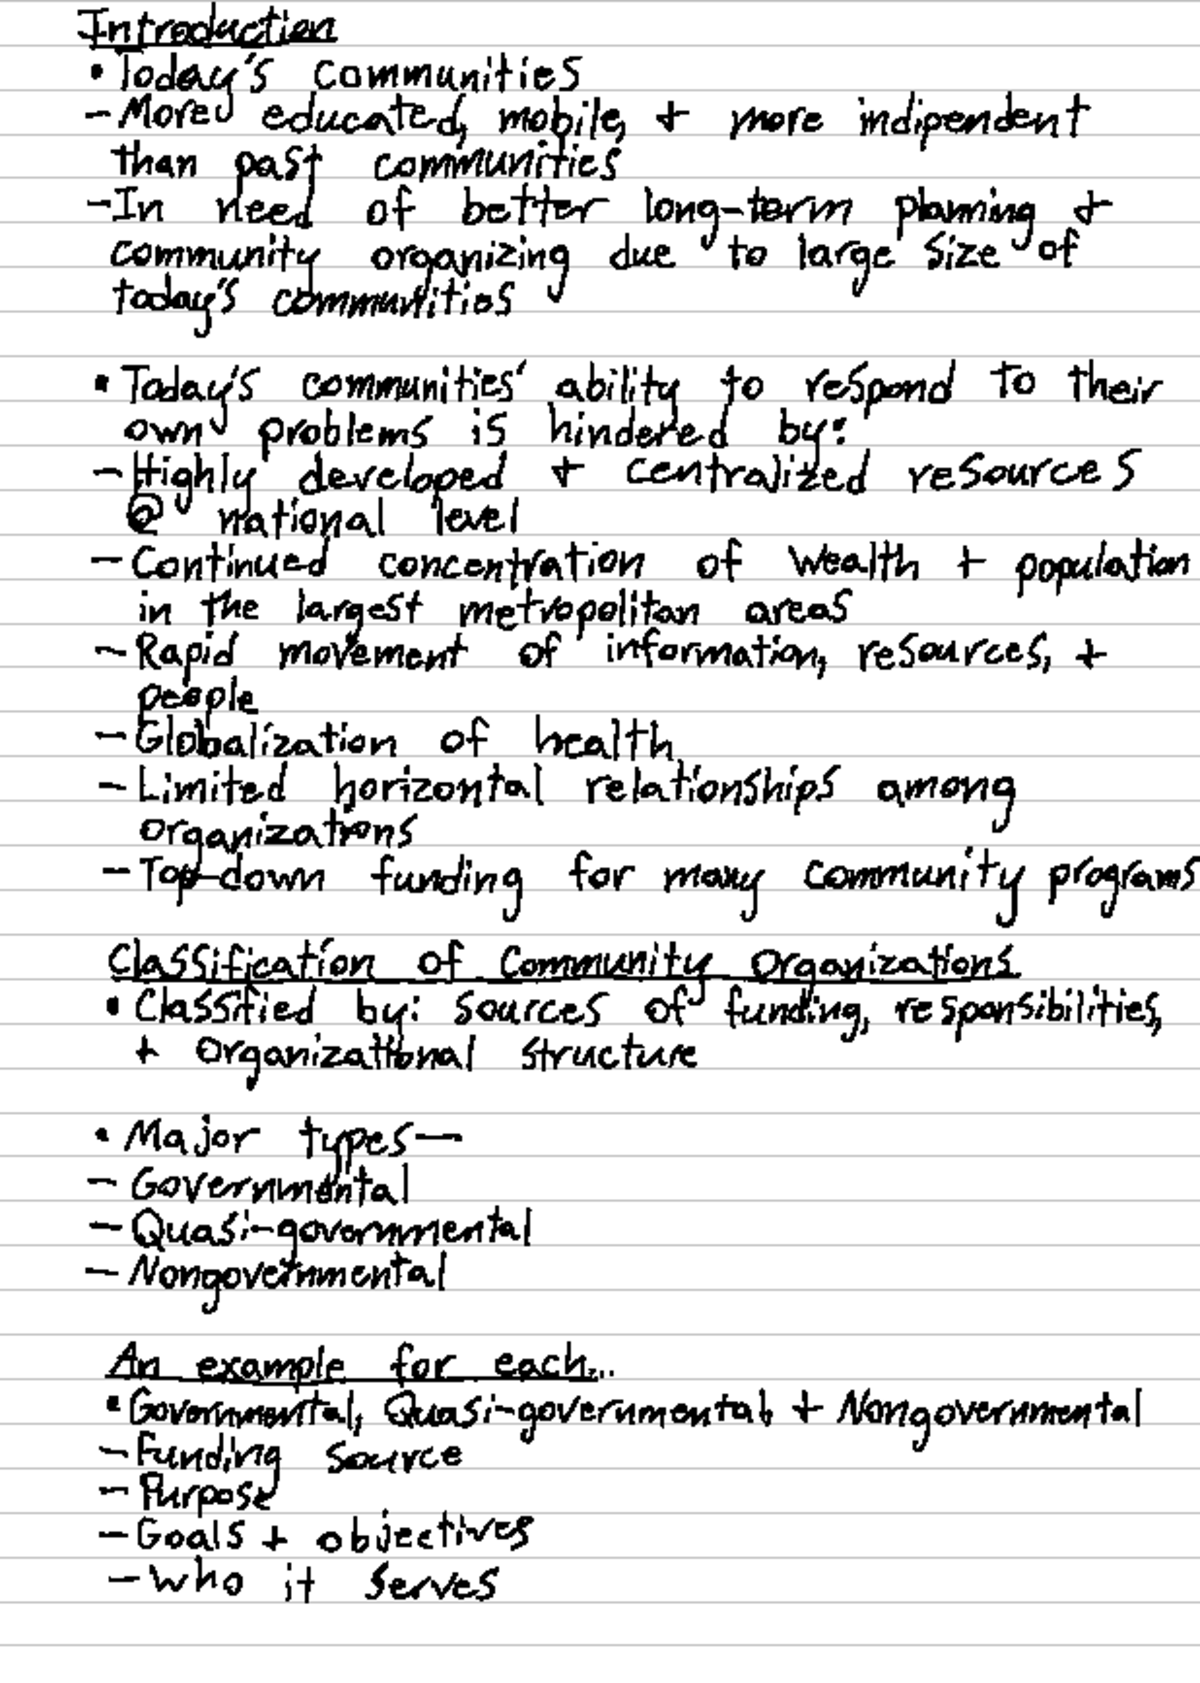 Introduction
• Today's communities
- More educated, mobile, + more indipendent
than past communities
- In need of better long-term planning +
community organizing due to large size of
today's communities
• Today's communities' ability to respond to their
own problems is hindered by:
- Highly developed + centralized resources
@ national level
- Continued concentration of wealth + population
in the largest metropolitan areas
- Rapid movement of information, resources, +
people
- Globalization of health
- Limited horizontal relationships among
organizations
- Top-down funding for many community programs
Classification of Community Organizations
• Classified by: sources of funding, responsibilities,
+ organizational structure
• Major types—
- Governmental
- Quasi-governmental
- Nongovernmental
An example for each...
• Governmental, Quasi-governmental, + Nongovernmental
- Funding source
- Purpose
- Goals + objectives
- Who it serves